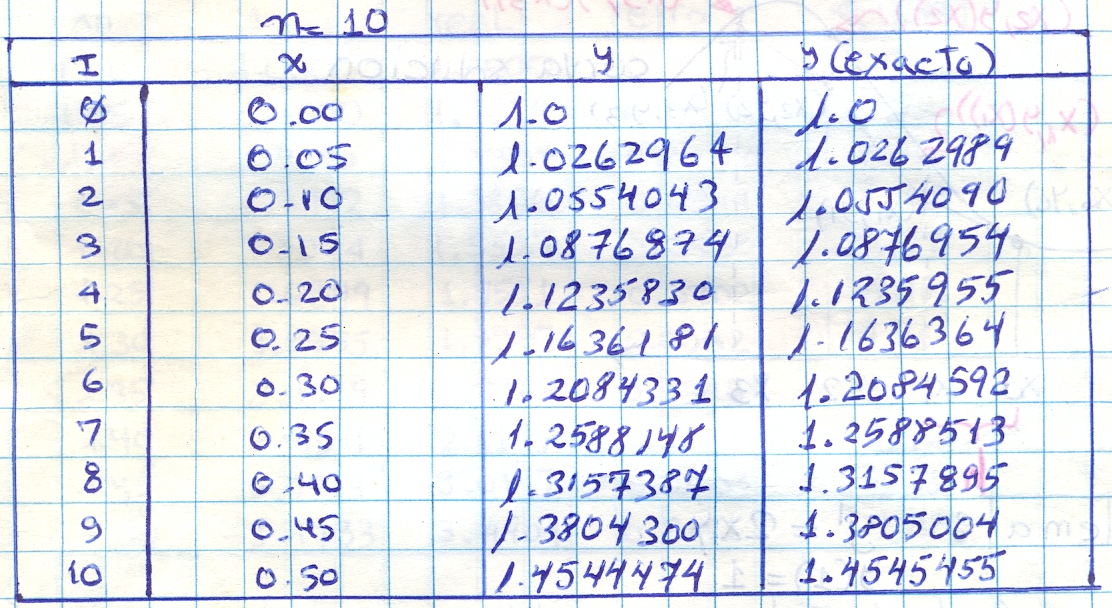 n= 10
I x y y (exacto)
0 0.00 1.0 1.0
1 0.05 1.0262964 1.0262989
2 0.10 1.0554043 1.0554090
3 0.15 1.0876874 1.0876954
4 0.20 1.1235830 1.1235955
5 0.25 1.1636181 1.1636364
6 0.30 1.2084331 1.2084592
7 0.35 1.2588148 1.2588513
8 0.40 1.3157387 1.3157895
9 0.45 1.3804300 1.3805004
10 0.50 1.4544474 1.4545455